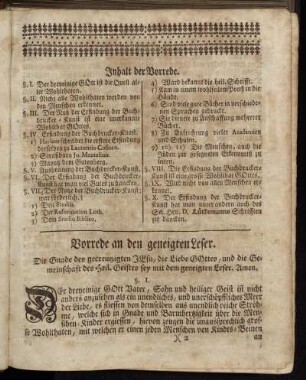 Inhalt der Vorrede.
§. I. Der dreyeinige GOtt ist die Quell al-
ler Wohlthaten.
§. II. Nicht alle Wohlthaten werden von
den Menschen erkennet.
§. III. Der Nutz der Erfindung der Buch-
drucker-Kunst ist eine
Wohlthat GOttes.
§. IV. Erfindung der Buchdrucker-Kunst.
1) Harlem schreibet die ersten Erfindung
derselben zu Laurentio Costern.
2) Straßburg Jo. Mentelin.
3) Maynz dem Gutenberg.
§. V. der Buchdrucker-Kunst.
§. VI. Der Erfindung der Buchdrucker-
Kunst hat man viel Gutes zu dancken.
§. VII. Der Nutz der Buchdrucker-Kunst
1) Dem Studiis.
2) Der Reformation Luth.
3) Dem Studio Biblico.
4) Ward bekannt die heil. Schrifft.
5) Kam in einem wohlfeilen Preiß in die
Hände.
6) Sind viele gute Bücher in verschiede-
nen Sprachen gedruckt.
7) Sie dienete zu Anschaffung mehrerer
Bücher.
8) Zu Aufrichtung vieler Academien
und Schulen.
Die Menschen, auch die
Blinden zu
zu
§. VIII. Die Erfindung der Buchdrucker-
Kunst ist eine grosse Wohlthat GOttes.
§. IX. Wird nicht von allen Menschen er-
§. X. Der Erfindung der Buchdrucker-
Kunst hat man auch des
Sel. Hrn. D. Lütkemanns Schrifften
zu dancken.
Vorrede an den geneigten Leser.
Die Gnade des gecreutzigten JEsu, die Liebe GOttes, und die Ge-
meinschaft des Heil. Geistes sey mit dem geneigten Leser. Amen.
§. I.
Der dreyeinige GOtt Vater, Sohn und heiliger Geist ist nicht
anders anzusehen als ein unendliches, und unerschöpfliches Meer
der Liebe, es fliessen von demselben aus unendlich reiche Ströh-
me, welche sich in Gnade und Barmhertzigkeit über die Men-
schen-Kinder ergiessen, hiervon zeugen die unaussprechlich gros-
se Wohlthaten, mit welchen er einen jeden Menschen von Kindes-Beinen
X 2 an